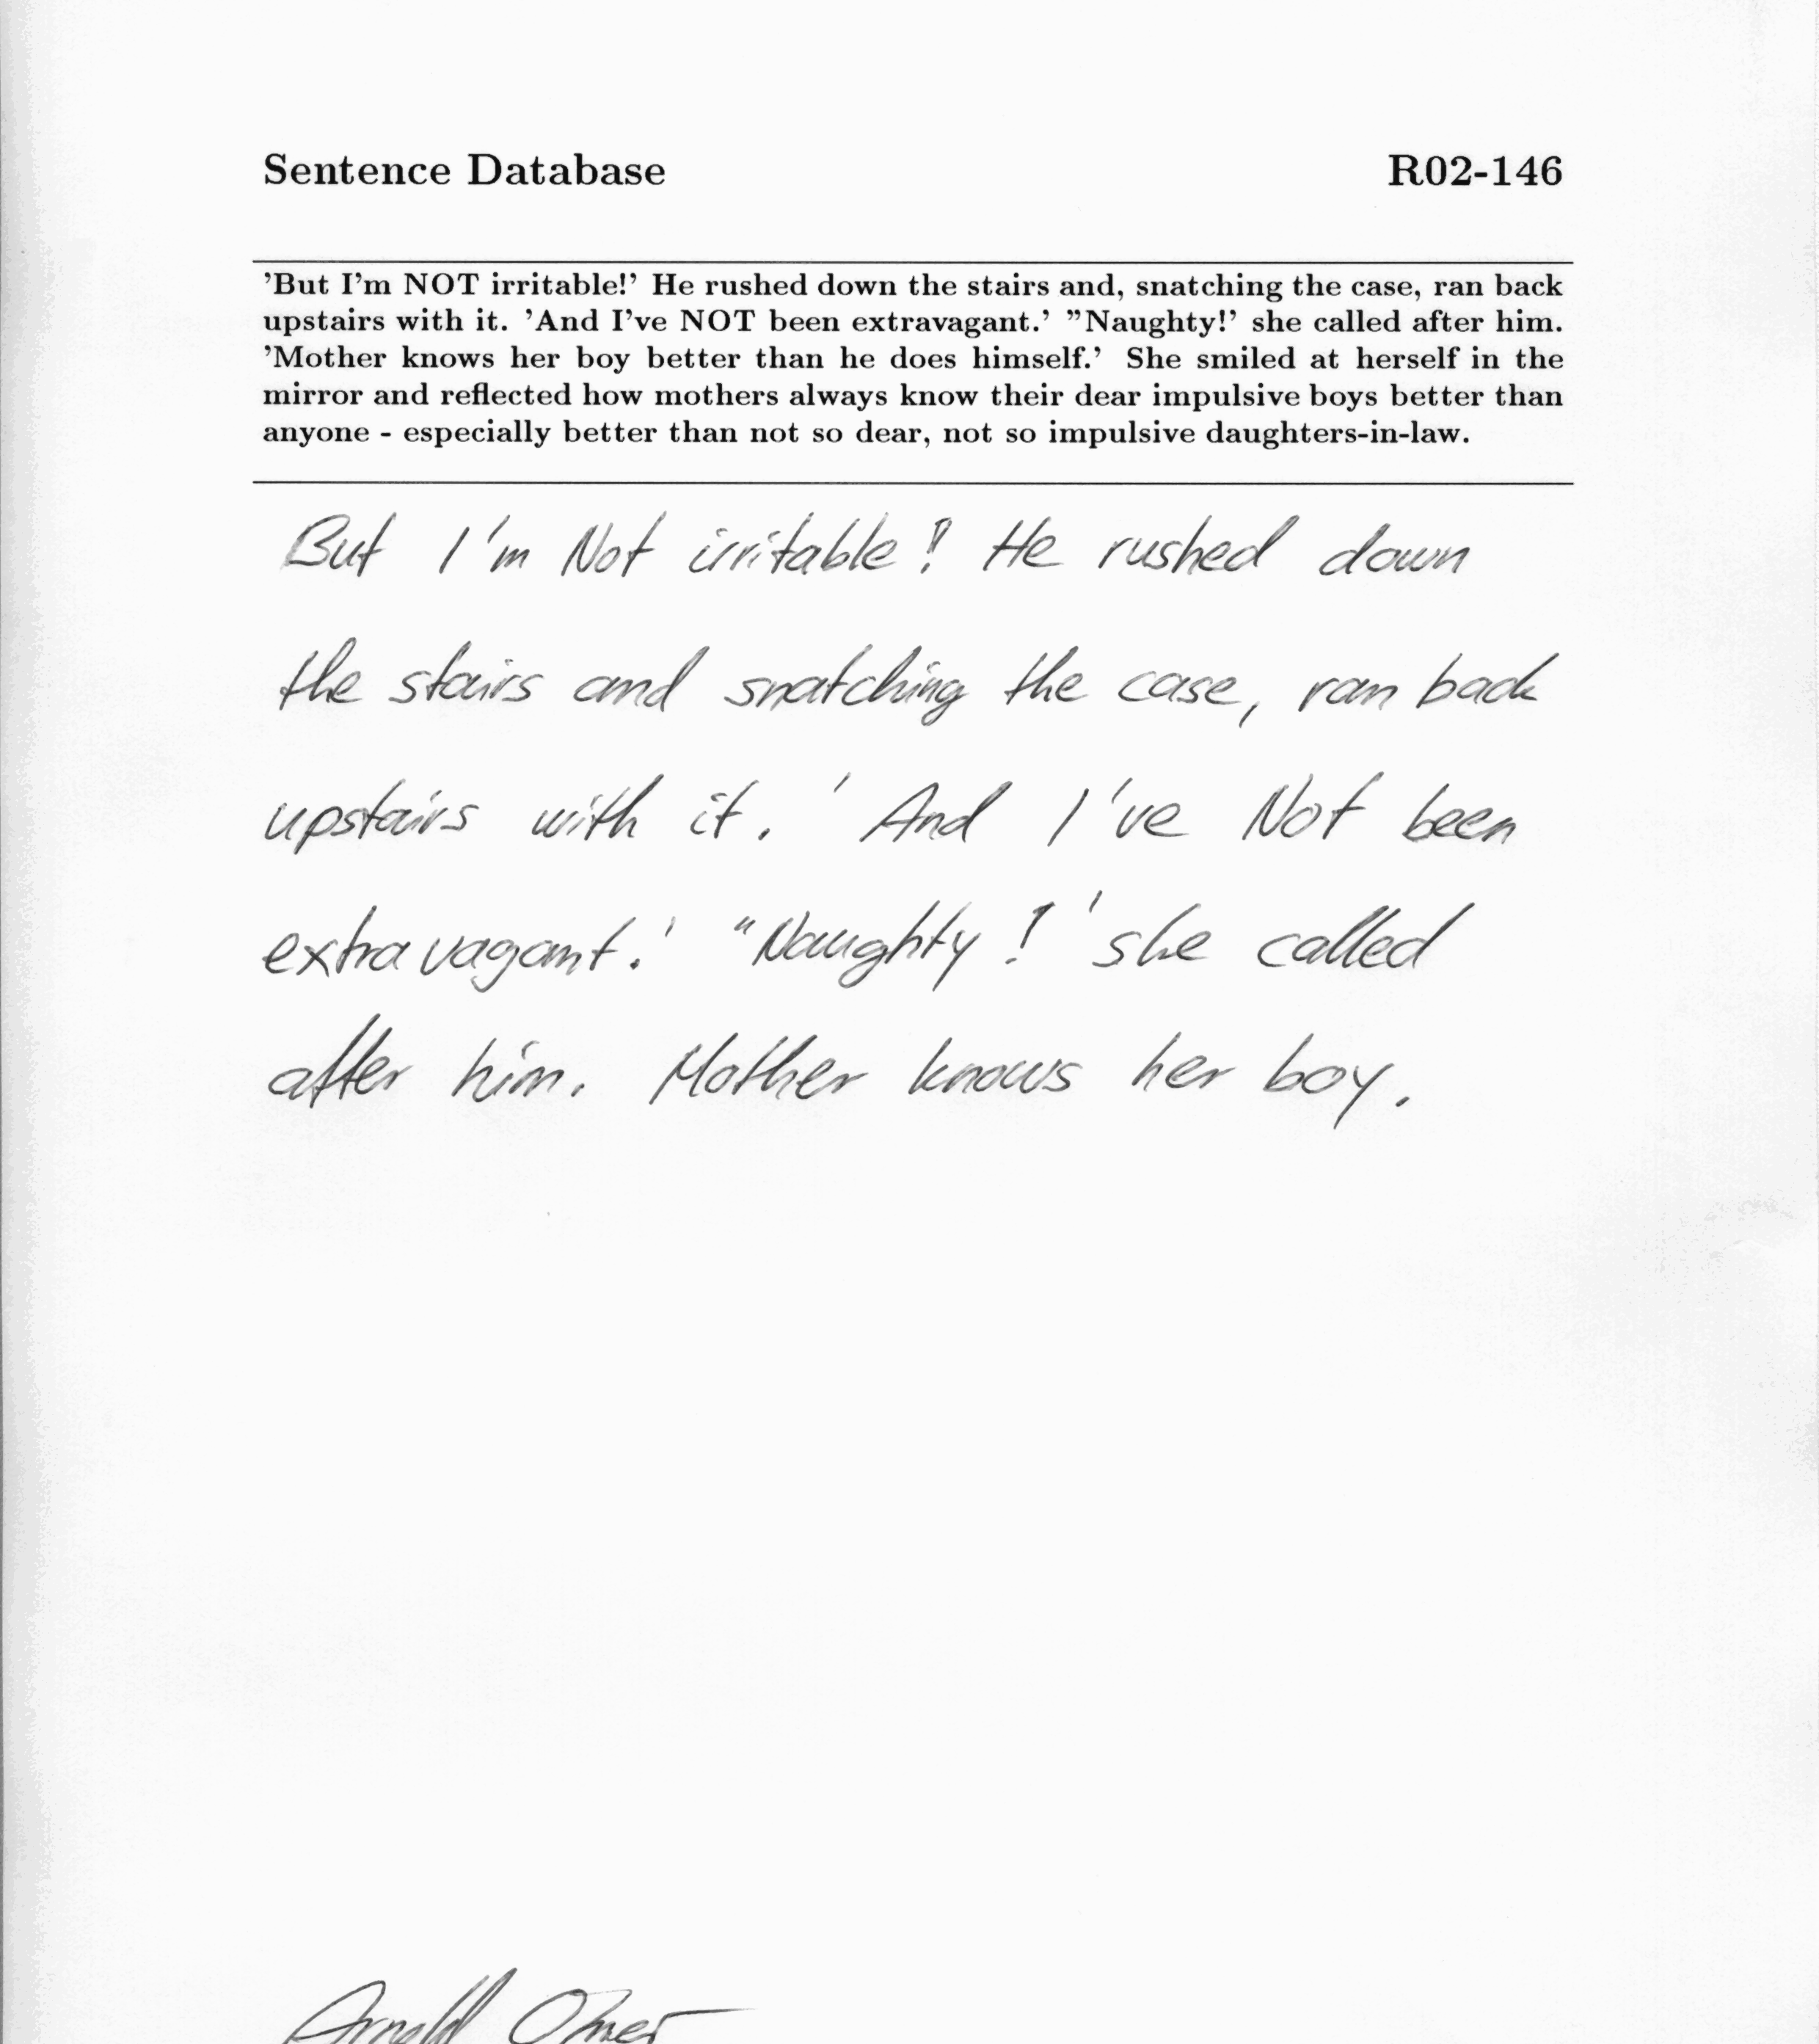 Sentence Database R02-146
'But I'm NOT irritable!' He rushed down the stairs and, snatching the case, ran back
upstairs with it. 'And I've NOT been extravagant.' "Naughty!' she called after him.
'Mother knows her boy better than he does himself.' She smiled at herself in the
mirror and reflected how mothers always know their dear impulsive boys better than
anyone - especially better than not so dear, not so impulsive daughters-in-law.
But I'm Not irritable! He rushed down
the stairs and snatching the case, ran back
upstairs with it. ' And I've Not been
extravagant.' "Naughty!' she called
after him. Mother knows her boy.
Arnold